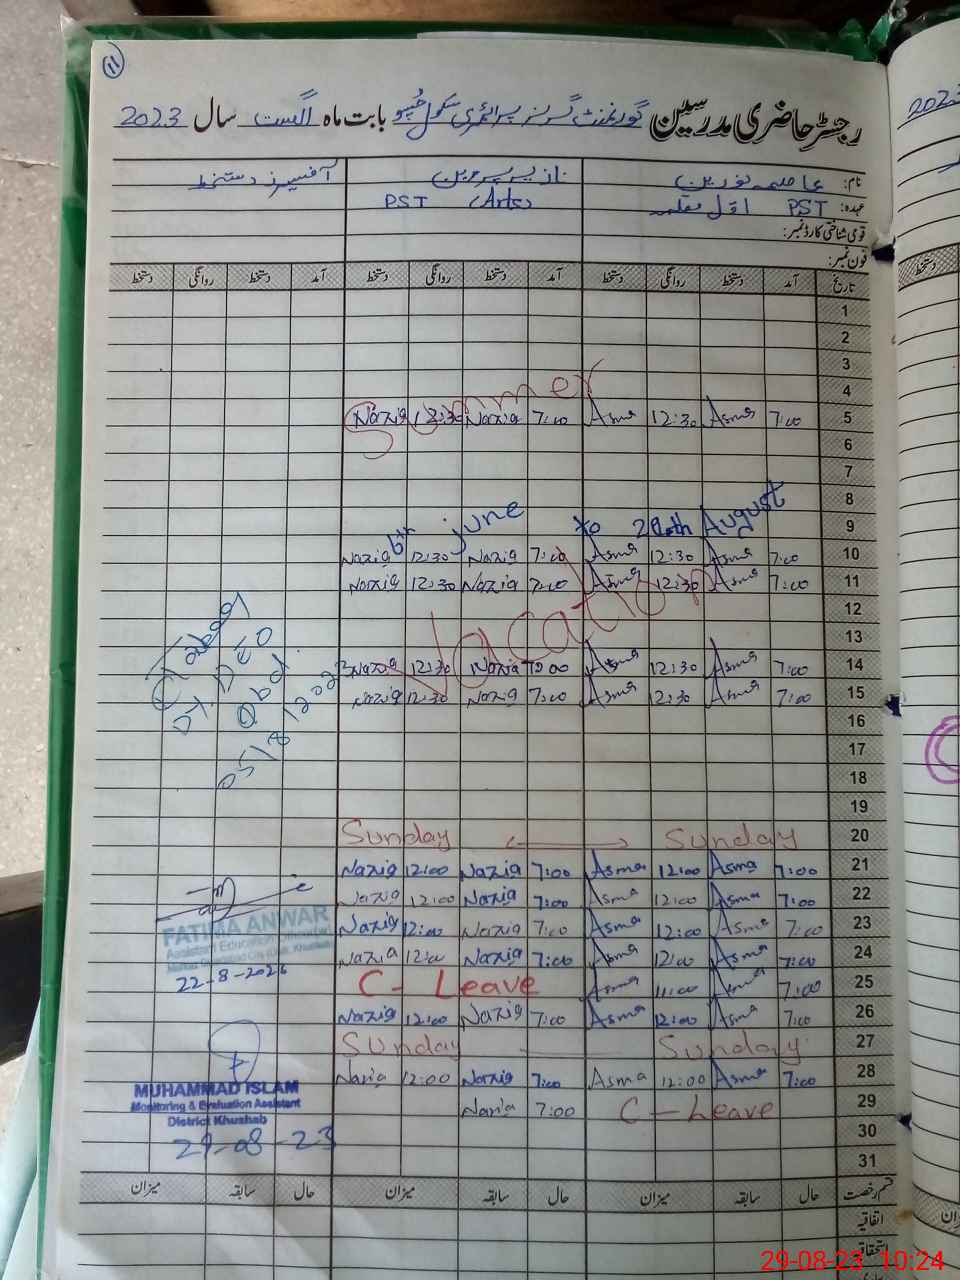 11
رجسٹر حاضری مدرسین گورنمنٹ گرلز پرائمری سکول بابت ماہ اگست سال 2023
نام: عاصمہ نورین نازیہ پروین آفیسرز دستخط
عہدہ: PST اول معلمہ PST (Arts)
قومی شناختی کارڈ نمبر:
فون نمبر:
تاریخ آمد دستخط روانگی دستخط آمد دستخط روانگی دستخط آمد دستخط روانگی دستخط
1
2
3
4
Summer
Nazia 12:30 Nazia 7:00 Asma 12:30 Asma 7:00 5
6
7
8
6th june to 20th August 9
Nazia 12:30 Nazia 7:00 Asma 12:30 Asma 7:00 10
Nazia 12:30 Nazia 7:00 Asma 12:30 Asma 7:00 11
Vacation
12
13
Nazia 12:30 Nazia 7:00 Asma 12:30 Asma 7:00 14
Nazia 12:30 Nazia 7:00 Asma 12:30 Asma 7:00 15
16
17
18
19
Sunday Sunday 20
Nazia 12:00 Nazia 7:00 Asma 12:00 Asma 7:00 21
Nazia 12:00 Nazia 7:00 Asma 12:00 Asma 7:00 22
Nazia 12:00 Nazia 7:00 Asma 12:00 Asma 7:00 23
Nazia 12:00 Nazia 7:00 Asma 12:00 Asma 7:00 24
C - Leave Asma 11:00 Asma 7:00 25
Nazia 12:00 Nazia 7:00 Asma 12:00 Asma 7:00 26
Sunday Sunday 27
Nazia 12:00 Nazia 7:00 Asma 12:00 Asma 7:00 28
Nazia 7:00 C - Leave 29
30
31
Dy. DEO
FATIMA ANWAR
Assistant Education Officer
MUHAMMAD ISLAM
Monitoring & Evaluation Assistant
District Khushab
29-08-23
قسم رخصت حال سابقہ میزان حال سابقہ میزان حال سابقہ میزان
اتفاقیہ
استحقاقیہ
2023
دستخط
29-08-23 10:24